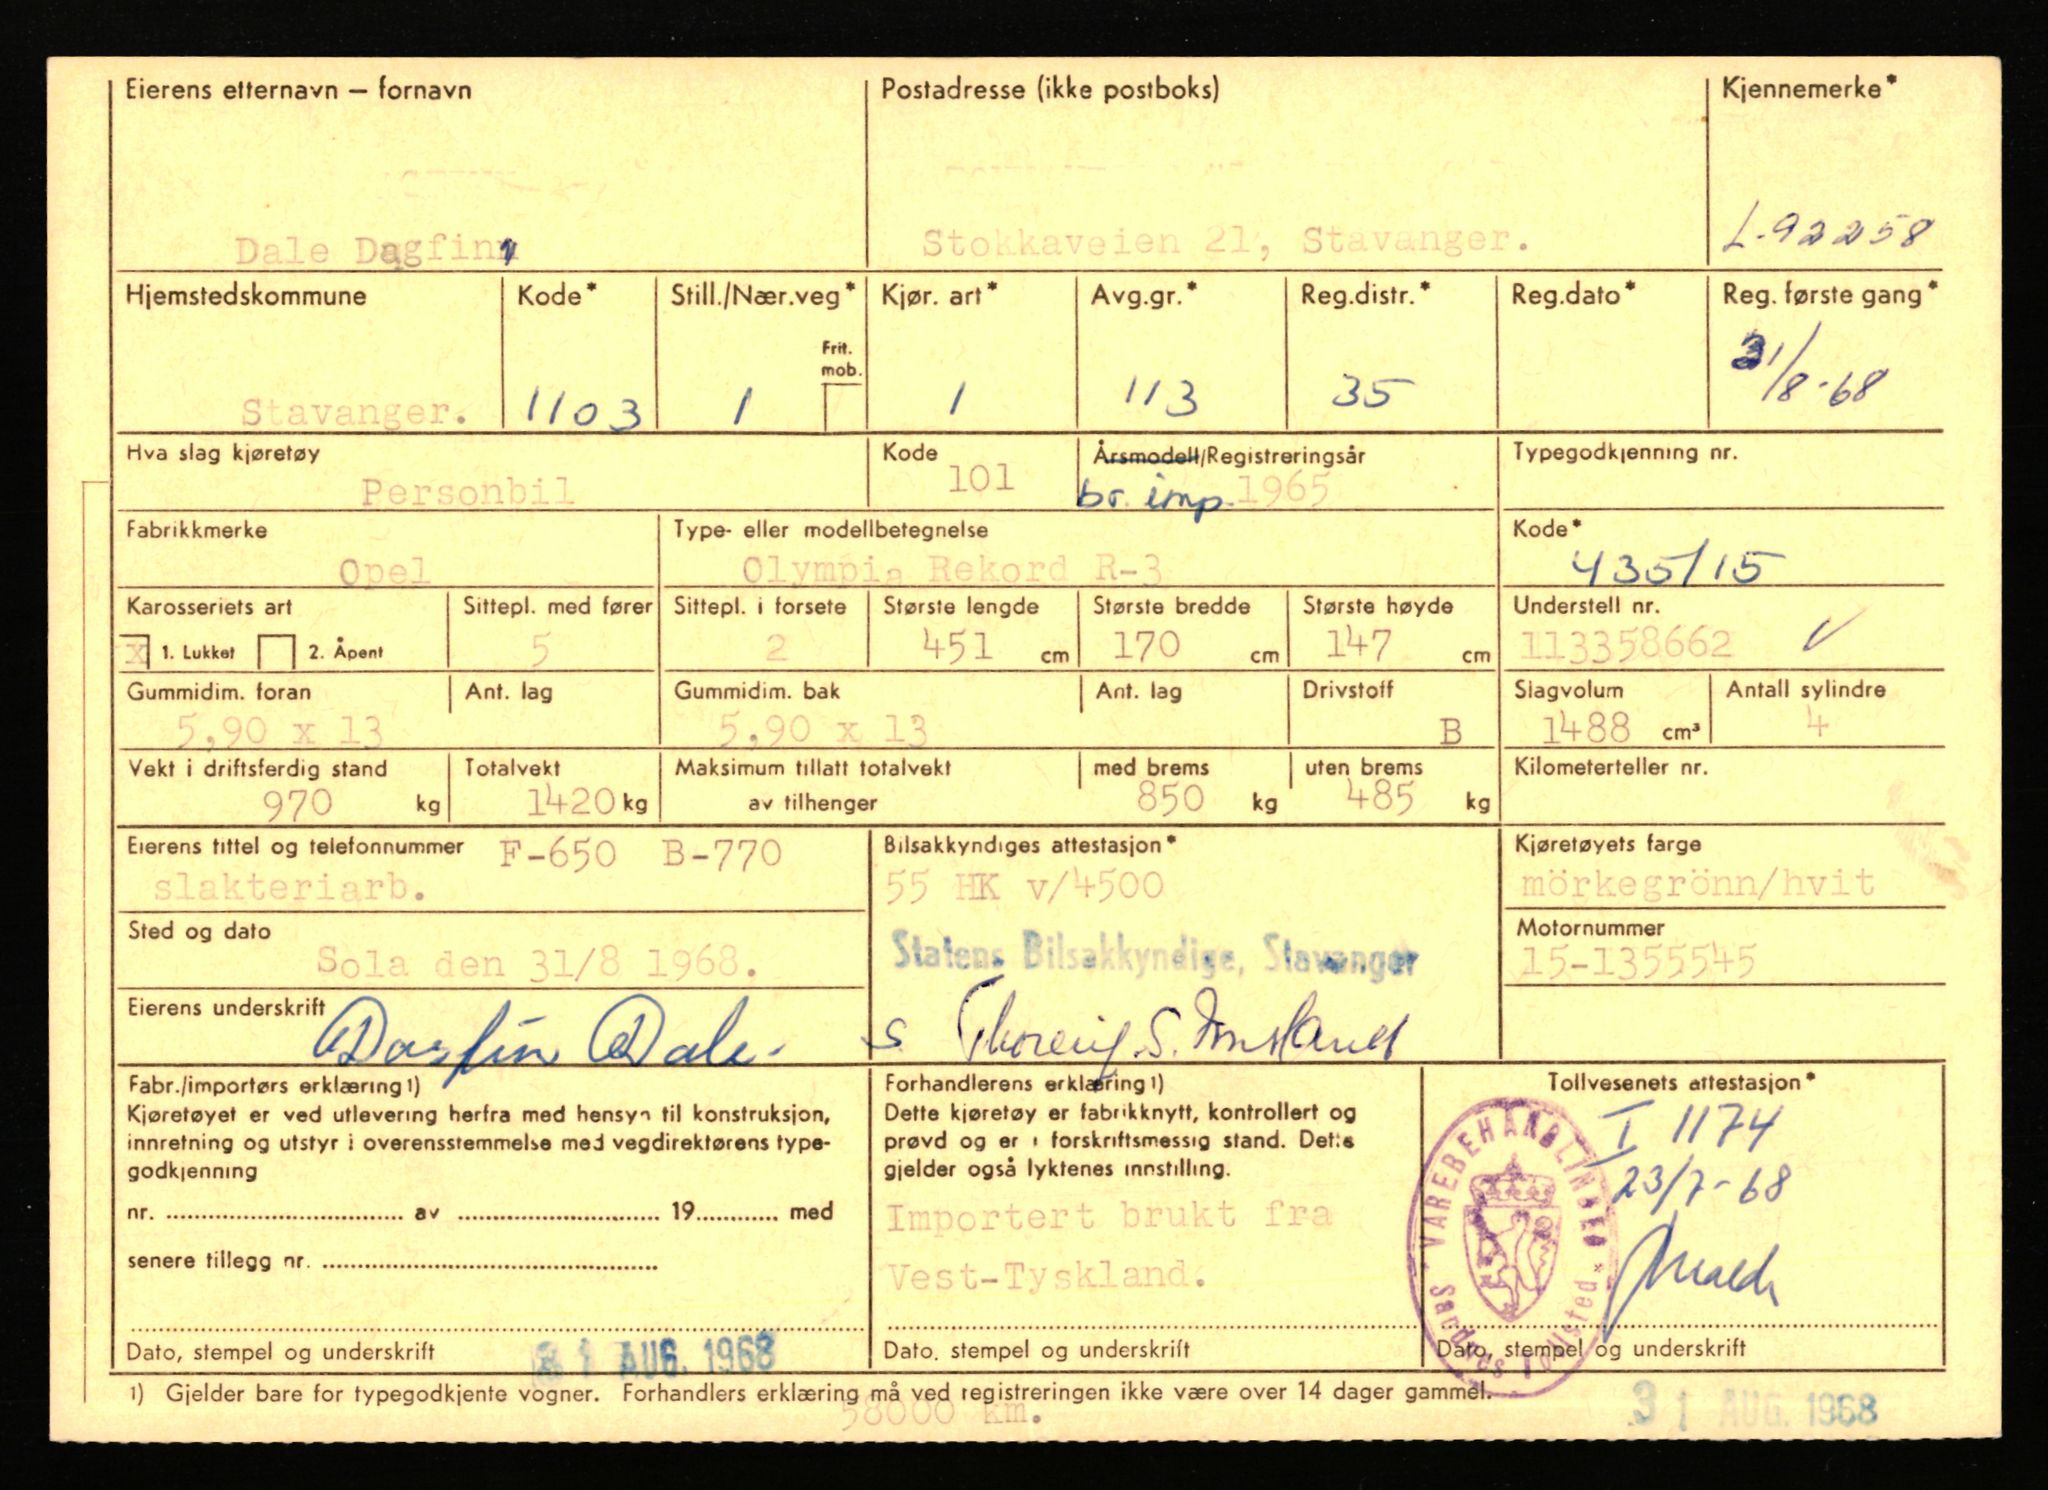 Eierens etternavn — fornavn Postadresse (ikke postboks) Kjennemerke*
Dale Dagfinn Stokkaveien 21, Stavanger. L-92258
Hjemstedskommune Kode* Still./Nær.veg* Kjør. art* Avg.gr.* Reg.distr.* Reg.dato* Reg. første gang*
Frit. mob.
Stavanger. 1103 1 1 113 35 31/8-68
Hva slag kjøretøy Kode Årsmodell/Registreringsår Typegodkjenning nr.
Personbil 101 br. imp. 1965
Fabrikkmerke Type- eller modellbetegnelse Kode*
Opel Olympia Rekord R-3 435/15
Karosseriets art Sittepl. med fører Sittepl. i forsete Største lengde Største bredde Største høyde Understell nr.
X 1. Lukket 2. Åpent 5 2 451 cm 170 cm 147 cm 113358662 ✓
Gummidim. foran Ant. lag Gummidim. bak Ant. lag Drivstoff Slagvolum Antall sylindre
5,90 x 13 5,90 x 13 B 1488 cm³ 4
Vekt i driftsferdig stand Totalvekt Maksimum tillatt totalvekt med brems uten brems Kilometerteller nr.
970 kg 1420 kg av tilhenger 850 kg 485 kg
Eierens tittel og telefonnummer F-650 B-770 Bilsakkyndiges attestasjon* Kjøretøyets farge
slakteriarb. 55 HK v/4500 mörkegrönn/hvit
Sted og dato Statens Bilsakkyndige, Stavanger Motornummer
Sola den 31/8 1968. 15-1355545
Eierens underskrift Dagfinn Dale
Fabr./importørs erklæring 1) Forhandlerens erklæring 1) Tollvesenets attestasjon*
Kjøretøyet er ved utlevering herfra med hensyn til konstruksjon, Dette kjøretøy er fabrikknytt, kontrollert og I 1174
innretning og utstyr i overensstemmelse med vegdirektørens type- prøvd og er i forskriftsmessig stand. Dette
godkjenning gjelder også lyktenes innstilling. 23/7-68
nr. av 19 med Importert brukt fra
senere tillegg nr. Vest-Tyskland.
VAREBEHANDLINGEN * Sandnes Tollsted *
Dato, stempel og underskrift 31 AUG. 1968 Dato, stempel og underskrift Dato, stempel og underskrift
1) Gjelder bare for typegodkjente vogner. Forhandlers erklæring må ved registreringen ikke være over 14 dager gammel.
58000 km. 31 AUG. 1968